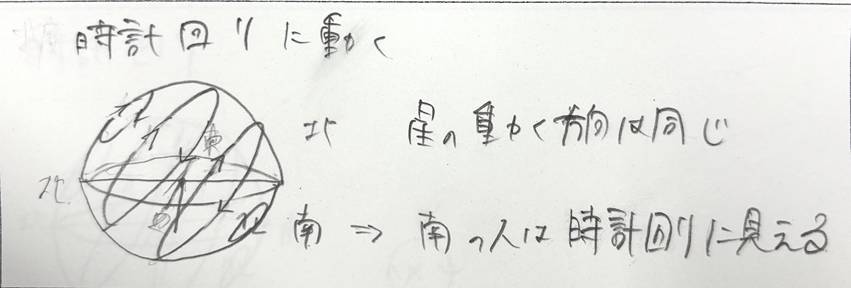 時計回りに動く
北 星の動く方向は同じ
東
北
西
南 ⇒ 南の人は時計回りに見える